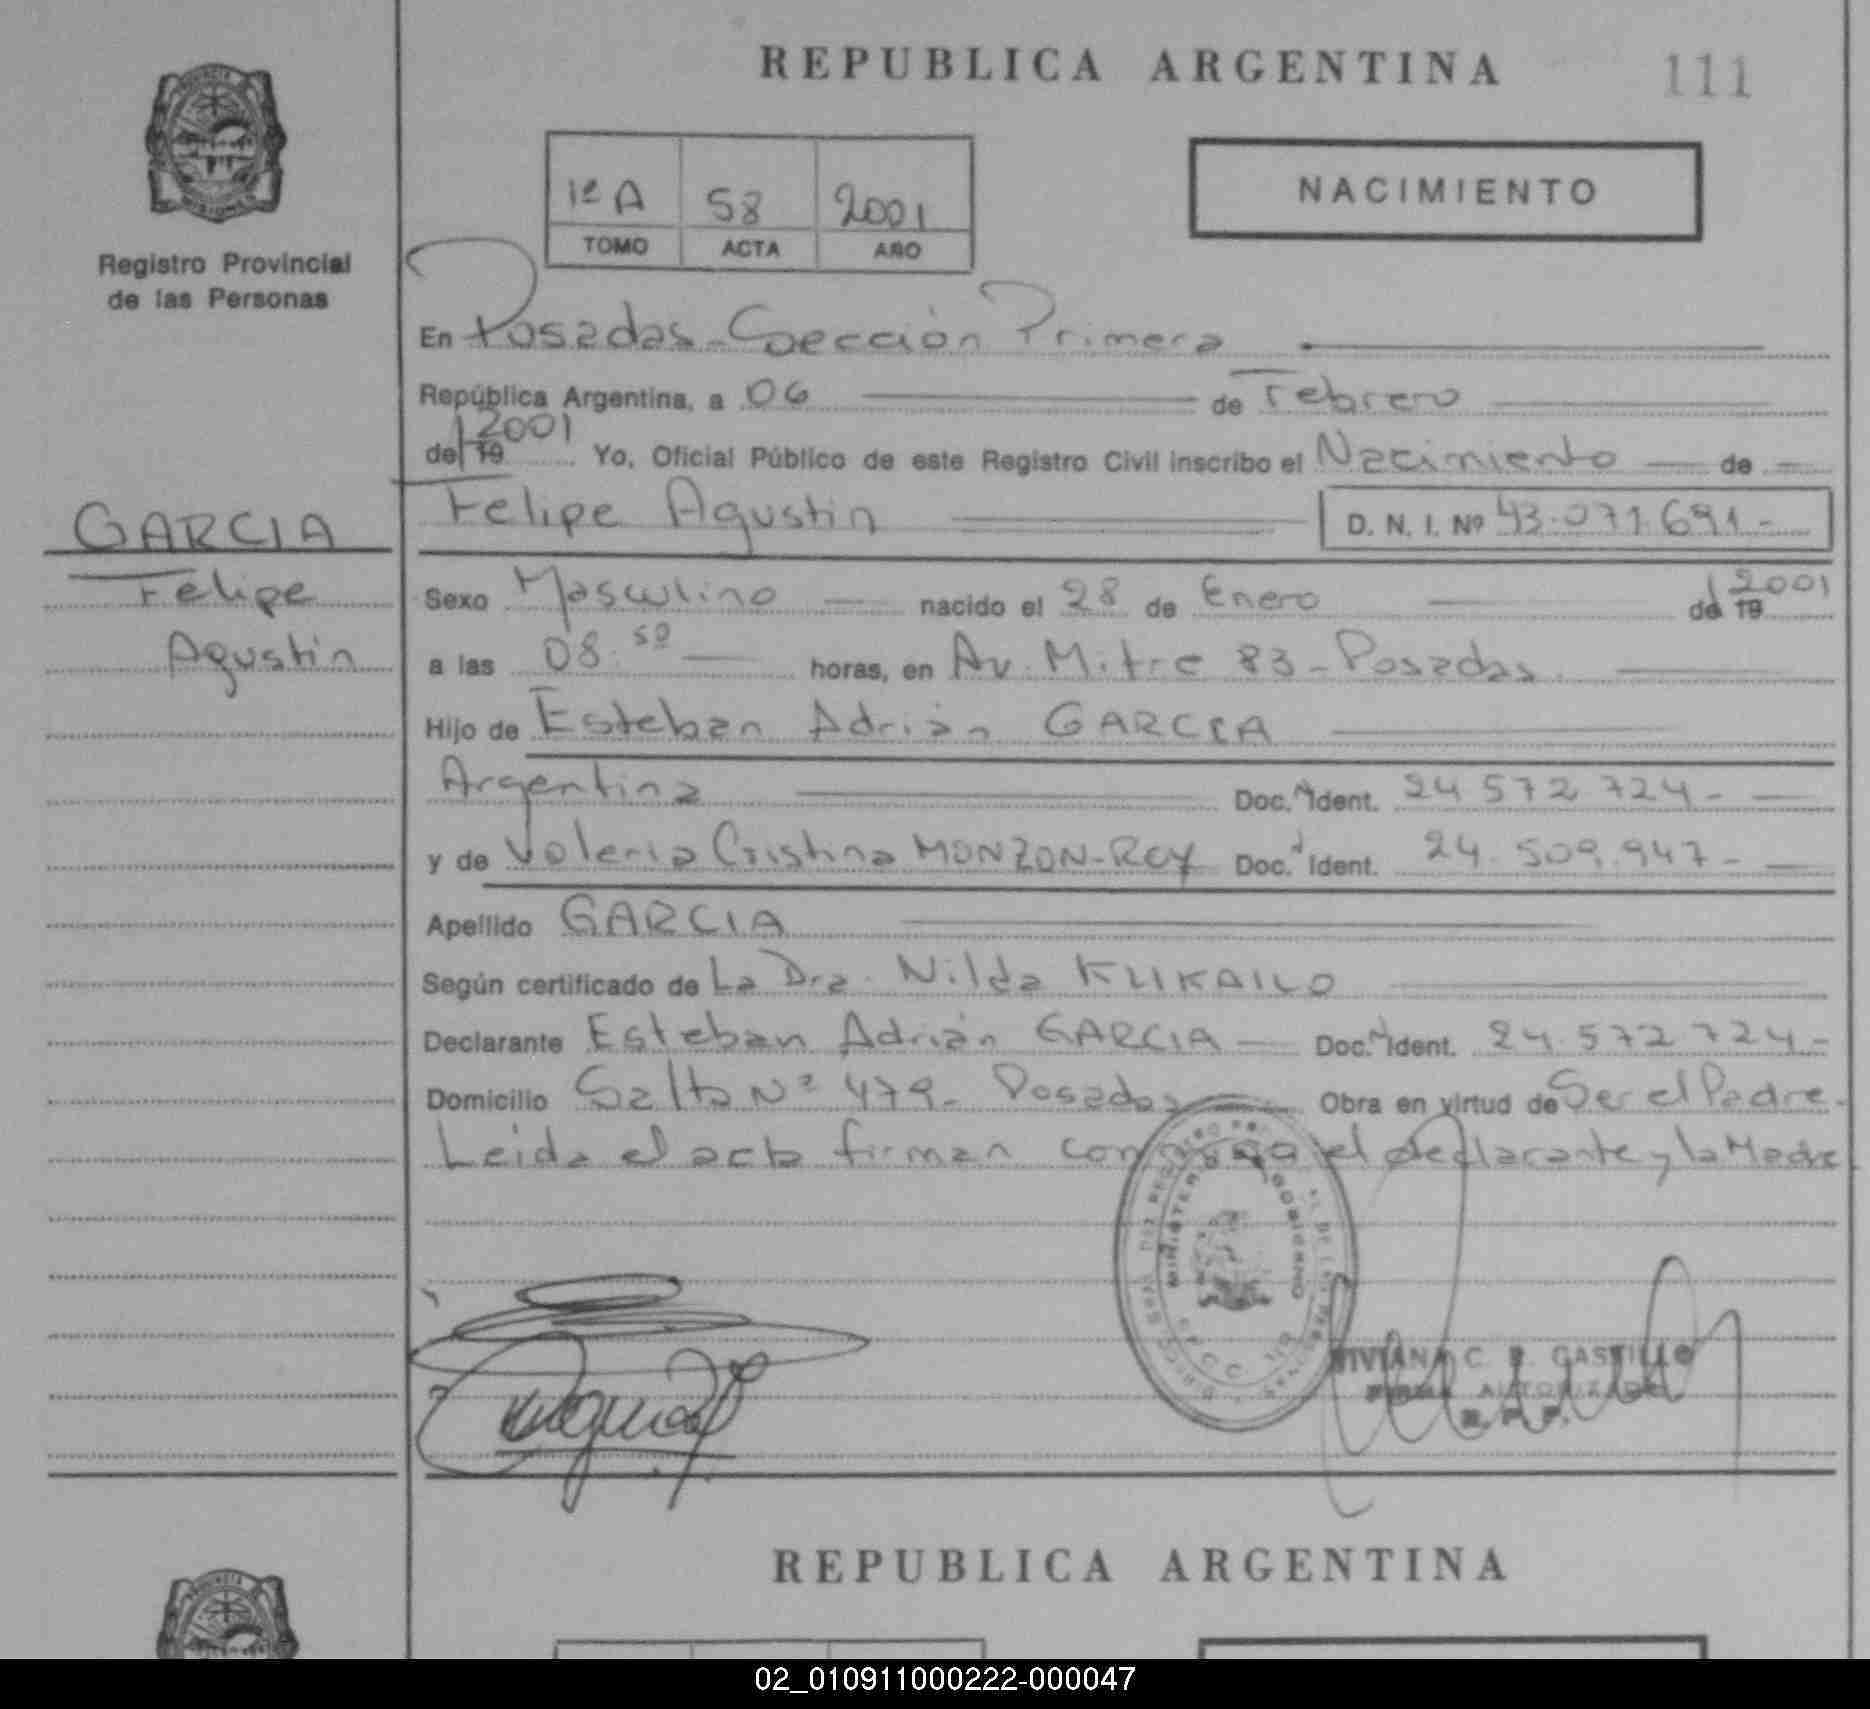 REPUBLICA ARGENTINA 111
1ª A 58 2001
TOMO ACTA AÑO
NACIMIENTO
Registro Provincial
de las Personas
En Posadas - Sección Primera
República Argentina, a 06 de Febrero
de 19 2001 Yo, Oficial Público de este Registro Civil inscribo el Nacimiento de
GARCIA
Felipe
Agustin
Felipe Agustin D. N. I. Nº 43.071.691.-
Sexo Masculino nacido el 28 de Enero de 19 2001
a las 08.50 horas, en Av. Mitre 83 - Posadas
Hijo de Esteban Adrián GARCIA
Argentina Doc. Ident. 24.572.724 -
y de Valeria Cristina MONZON-REY Doc. Ident. 24.509.947 -
Apellido GARCIA
Según certificado de La Dra. Nilda KLIKAILO
Declarante Esteban Adrián GARCIA Doc. Ident. 24.572.724 -
Domicilio Salta Nº 479 - Posadas Obra en virtud de Ser el Padre.
Leida el acta firman conmigo el declarante y la Madre
MINISTERIO GOBIERNO
VIVIANA C. CASTILLO
FIRMA AUTORIZADA
R. P. P.
REPUBLICA ARGENTINA
02_010911000222-000047